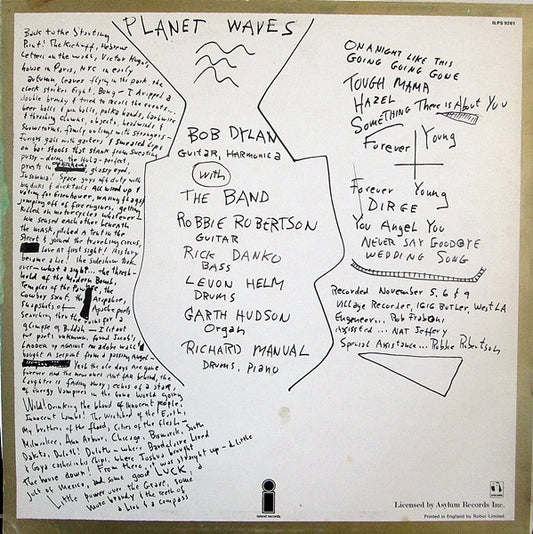 PLANET WAVES
ILPS 9261
Back to the Starting
Point! The Kickoff, Hebrew
Letters on the wall, Victor Hugo's
house in Paris, NYC in early
autumn, leaves flying in the park, the
clock strikes Eight, Bong - I dropped a
double brandy & tried to recall the events...
beer halls & pin balls, polka bands, barbwire
& thrashing clowns, objects, headwinds &
snowstorms, family outings with strangers -
Furious gals with garters & smeared lips
on bar stools that stank from sweating
pussy - doing the Hula - perfect,
priests in glassy eyed,
Insomnia! Space guys off duty with
big dicks & ducktails All wired up &
voting for Eisenhower, waving flags &
jumping off of fire engines, getting
killed on motorcycles whatever -
We sensed each other beneath
the mask, pitched a tent in the
Street & joined the traveling circus,
love at first sight! History
became a lie! the sideshow took
over - what a sight... the thresh-
hold of the Modern Bomb,
Temples of the Pawnee, the
Cowboy saint, the Arapahoe,
snapshots of Apache poets
searching thru the ruins for a
glimpse of Buddah - I lit out
for parts unknown, found Jacob's
ladder up against an adobe wall &
bought A serpent from a passing Angel -
Yeah the ole days are gone
forever and the new ones Aint far behind, the
Laughter is fading away, echos of a star,
of Energy Vampires in the Gone World going
Wild! Drinking the blood of innocent people,
Innocent Lambs! The Wretched of the Earth,
My brothers of the flood, Cities of the flesh -
Milwaukee, Ann Arbor, Chicago, Bismarck, South
Dakota, Duluth! Duluth - where Baudelaire Lived
& Goya cashed in his Chips, where Joshua brought
the house down! From there, it was straight up - a little
jolt of Mexico, and some good LUCK, a
Little power over the Grave, some
more brandy & the teeth of
a Lion & a compass
BOB DYLAN
GUITAR, HARMONICA
with
THE BAND
ROBBIE ROBERTSON
GUITAR
RICK DANKO
BASS
LEVON HELM
DRUMS
GARTH HUDSON
Organ
RICHARD MANUAL
DRUMS, PIANO
ON A NIGHT LIKE THIS
GOING GOING GONE
TOUGH MAMA
HAZEL
SOMETHING There is About You
Forever Young
Forever Young
DIRGE
You Angel You
NEVER SAY GOODBYE
WEDDING SONG
Recorded November 5, 6 & 9
Village Recorder, 1616 Butler, West LA
Engineer... Rob Fraboni
Assisted... NAT Jeffery
Special Assistance... Robbie Robertson
island records
Licensed by Asylum Records Inc.
Printed in England by Robor Limited